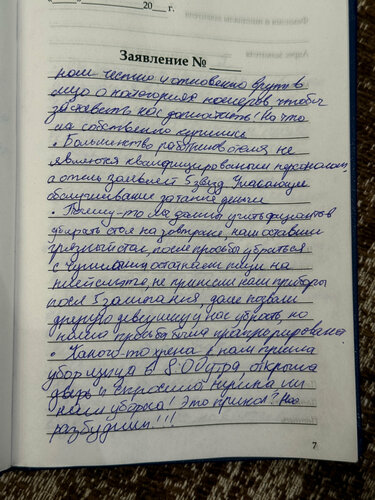 20 г.
Заявление №
ном честно и откновенно врут в
лицо о категориях номеров чтобы
заставить нас доплатить! На что
мы собственно купились
• Большинство работников отеля не
являются квалифицироваными персоналом,
а отель заявляет 5 звёзд. Ужасающее
обслуживание за такие деньги
• Почему-то Мы должны учить официантов
убирать стол на завтраке нам оставили
грязный стол, после просьбы убраться
с остатками пищи на
не принесли нам приборы
после 5 замечания даже позвали
другую девушку у нас убрать, но
наша просьба была проигнорирована
• Какого-то хрена к нам пришла
уборщица в 8:00 утра открыла
дверь и спросила нужна ли
нам уборка! Это прикол? Нас
разбудили!!!
7